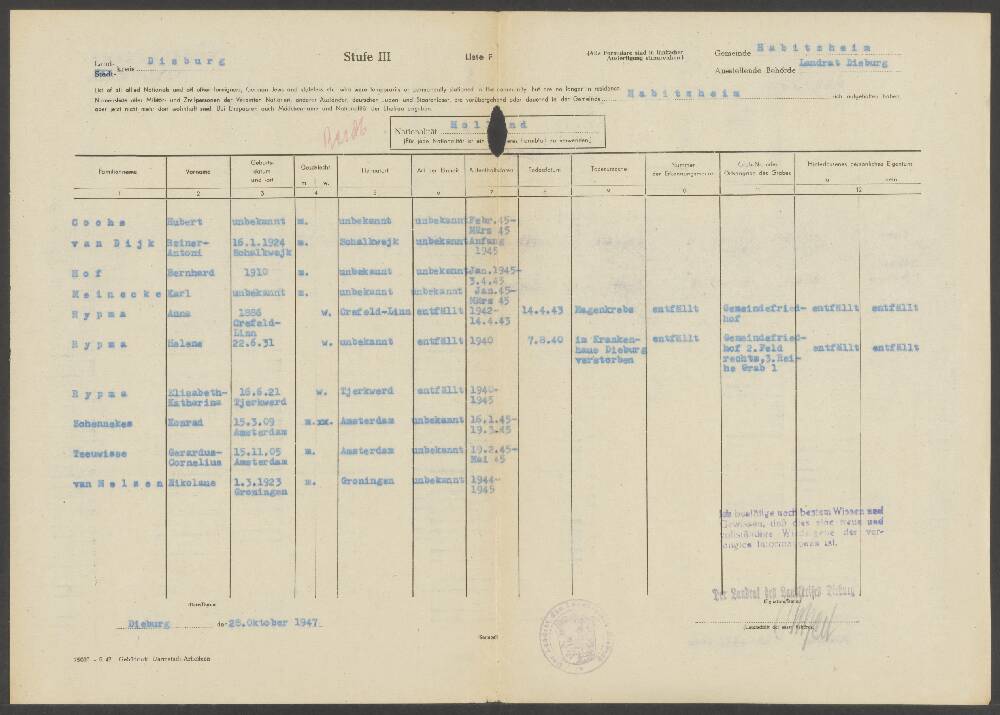 Stufe III
Liste F
(Alle Formulare sind in 6facher
Ausfertigung einzureichen)
Land-
Stadt- kreis Dieburg
Gemeinde Habitzheim
Ausstellende Behörde Landrat Dieburg
List of all allied Nationals and all other foreigners, German Jews and stateless etc. who were temporarily or permanently stationed in the community, but are no longer in residence.
Namensliste aller Militär- und Zivilpersonen der Vereinten Nationen, anderer Ausländer, deutscher Juden und Staatenloser, die vorübergehend oder dauernd in der Gemeinde Habitzheim sich aufgehalten haben,
aber jetzt nicht mehr dort wohnhaft sind. Bei Ehepaaren auch Mädchenname und Nationalität der Ehefrau angeben.
Nationalität Holland
(Für jede Nationalität ist ein Formblatt zu verwenden)
Familienname Vorname Geburts-datum und -ort Geschlecht m. w. Heimatort Art der Einheit Aufenthaltsdaten Todesdatum Todesursache Nummer der Erkennungsmarke Grab-No. oder Ortsangabe des Grabes Hinterlassenes persönliches Eigentum ja nein
1 2 3 4 5 6 7 8 9 10 11 12
Cochs Hubert unbekannt m. unbekannt unbekannt Febr.45-
März 45
van Dijk Reiner- 16.1.1924 m. Schalkwejk unbekannt Anfang
Antoni Schalkwejk 1945
Hof Bernhard 1910 m. unbekannt unbekannt Jan.1945-
3.4.45
Meinecke Karl unbekannt m. unbekannt unbekannt Jan.45-
März 45
Rypma Anna 1886 w. Crefeld-Linn entfällt 1942- 14.4.43 Magenkrebs entfällt Gemeindefried- entfällt entfällt
Crefeld- 14.4.43 hof
Linn
Rypma Helene 22.6.31 w. unbekannt entfällt 1940 7.8.40 im Kranken- entfällt Gemeindefried- entfällt entfällt
haus Dieburg hof 2.Feld
verstorben rechts,3.Rei-
he Grab 1
Rypma Elisabeth- 16.6.21 w. Tjerkwerd entfällt 1940-
Katharina Tjerkwerd 1945
Schennekes Konrad 15.3.09 m. Amsterdam unbekannt 16.1.45-
Amsterdam 19.3.45
Teeuwisse Gerardus- 15.11.05 m. Amsterdam unbekannt 19.2.45-
Cornelius Amsterdam Mai 45
van Nelsen Nikolaus 1.3.1923 m. Groningen unbekannt 1944-
Groningen 1945
Ich bestätige nach bestem Wissen und
Gewissen, daß dies eine treue und
vollständige Wiedergabe der ver-
langten Informationen ist.
Der Landrat des Landkreises Dieburg
Dieburg den 28.Oktober 1947